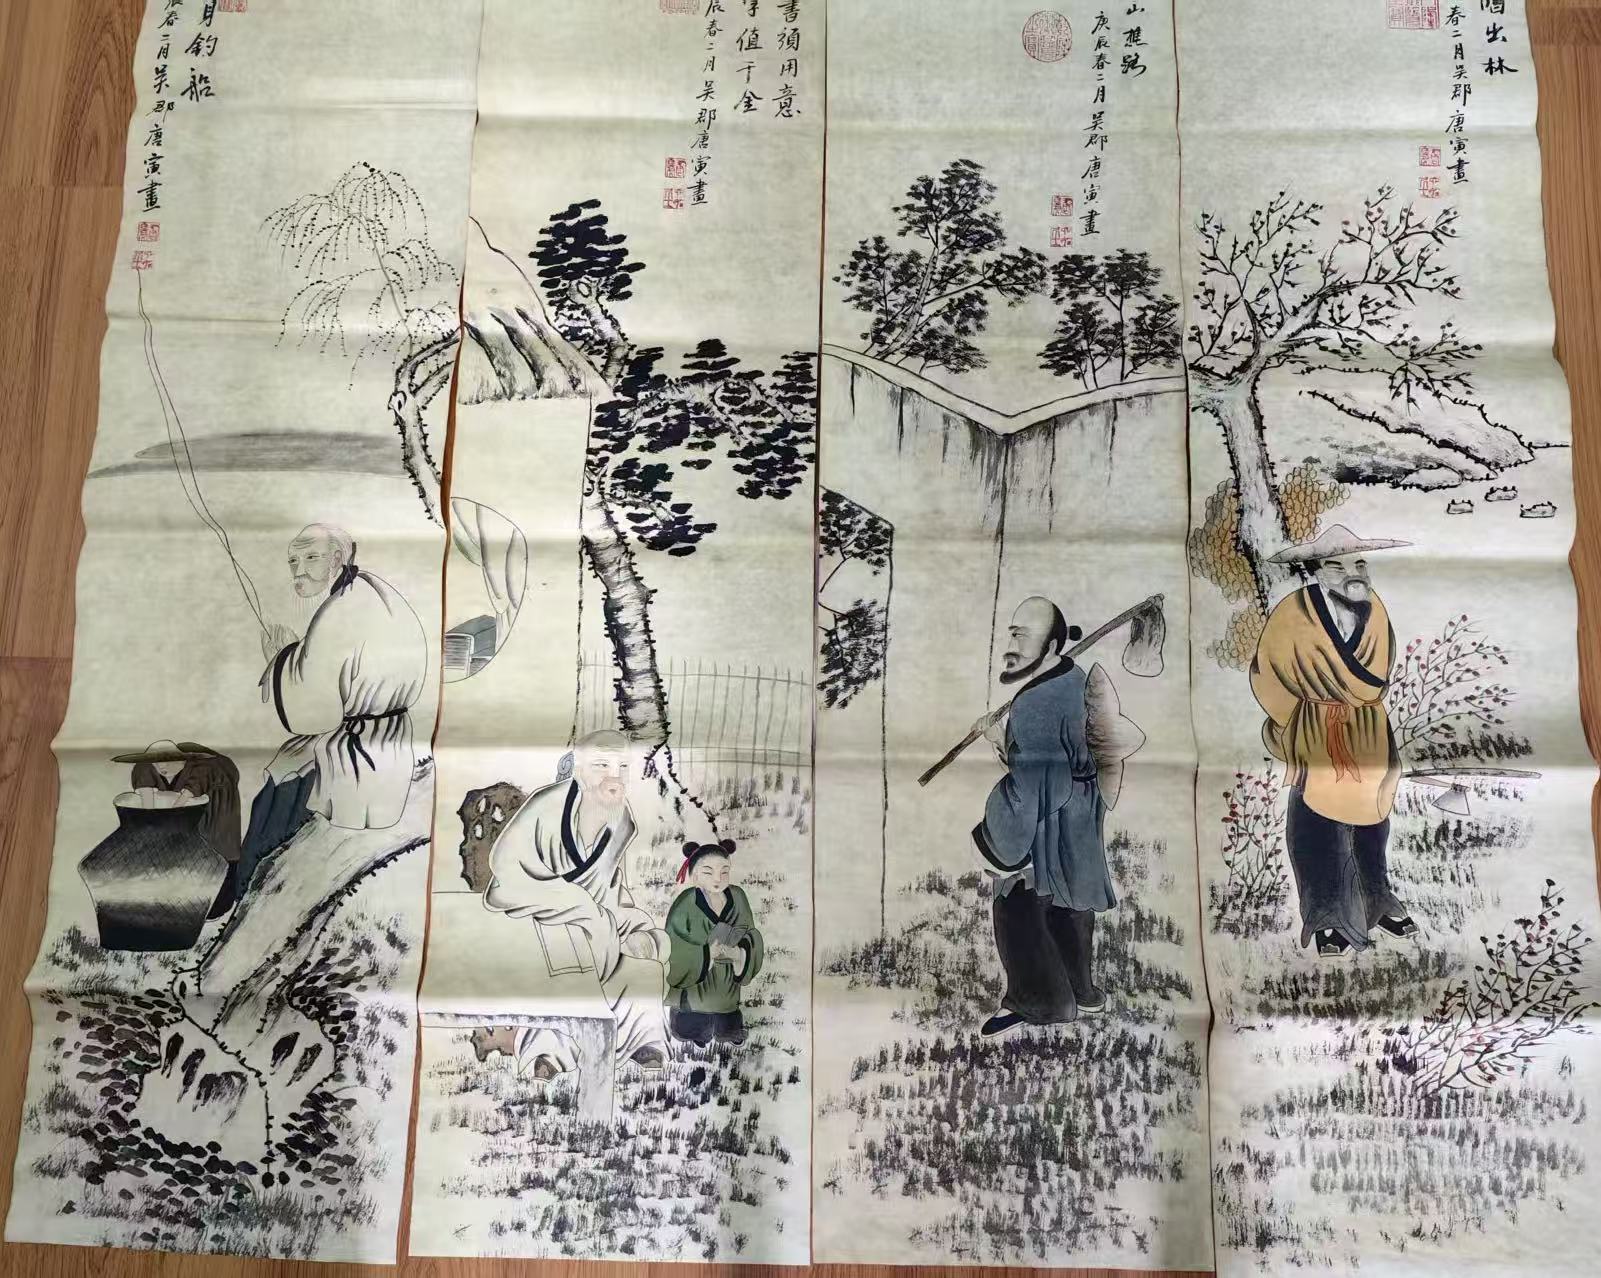 月釣船
辰春二月吳郡唐寅畫
書須用意
字值千金
辰春二月吳郡唐寅畫
山樵路
庚辰春二月吳郡唐寅畫
出林
春二月吳郡唐寅畫